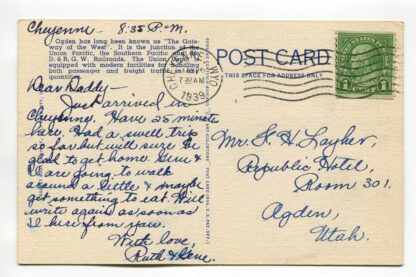 Cheyenne 8:35 P.M.
Ogden has long been known as "The Gate-
way of the West". It is the junction of the
Union Pacific, the Southern Pacific and the
D. & R.G.W. Railroads. The Union Depot is
equipped with modern facilities for handling
both passenger and freight traffic in any
quantities.
Dear Daddy—
Just arrived in
Cheyenne. Have 25 minute
here. Had a swell trip
so far but will sure be
glad to get home. Gene &
I are going to walk
around a little & maybe
get something to eat. Will
write again as soon as
I hear from you.
With love,
Ruth & Gene.
POST CARD
THIS SPACE FOR ADDRESS ONLY
CHEYENNE
7 30 AM
1939
WYO
1 1
Mr. F. H. Layher,
Republic Hotel,
Room 301.
Ogden,
Utah.